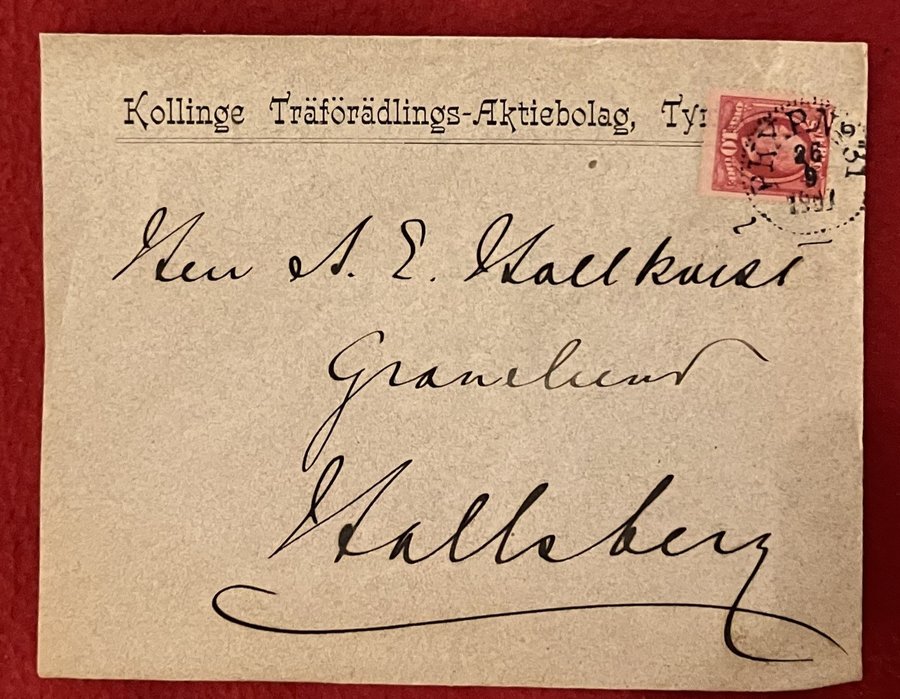 Kollinge Träförädlings-Aktiebolag, Tyr
PKXP.N 231
26
9
1891
Herr A. E. Hallkvist
Granelund
Hallsberg